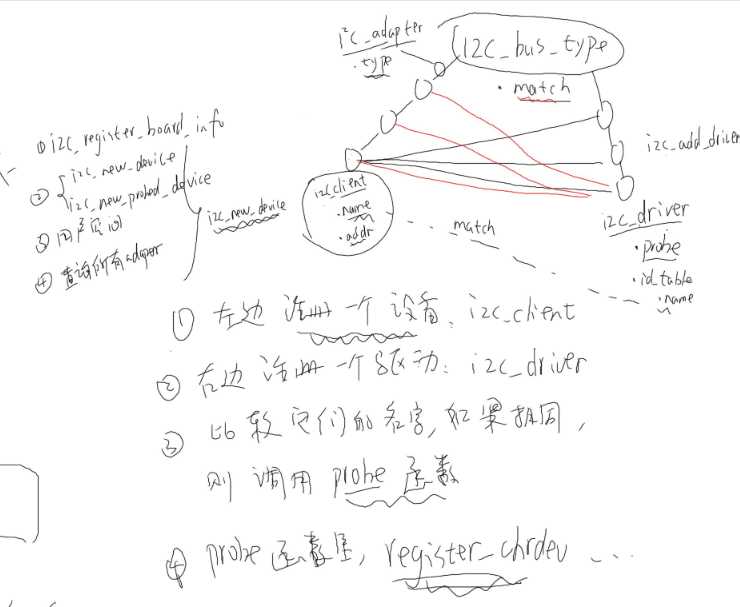 i2c_adapter
.type
i2c_bus_type
.match
①i2c_register_board_info
② i2c_new_device
i2c_new_probed_device
③用户空间
④查询所有adapter
i2c_new_device
i2c_client
.name
.addr
match
i2c_add_driver
i2c_driver
.probe
.id_table
.name
① 左边注册一个设备: i2c_client
② 右边注册一个驱动: i2c_driver
③ 比较它们的名字,如果相同,
则调用 probe 函数
④ probe 函数里, register_chrdev ...